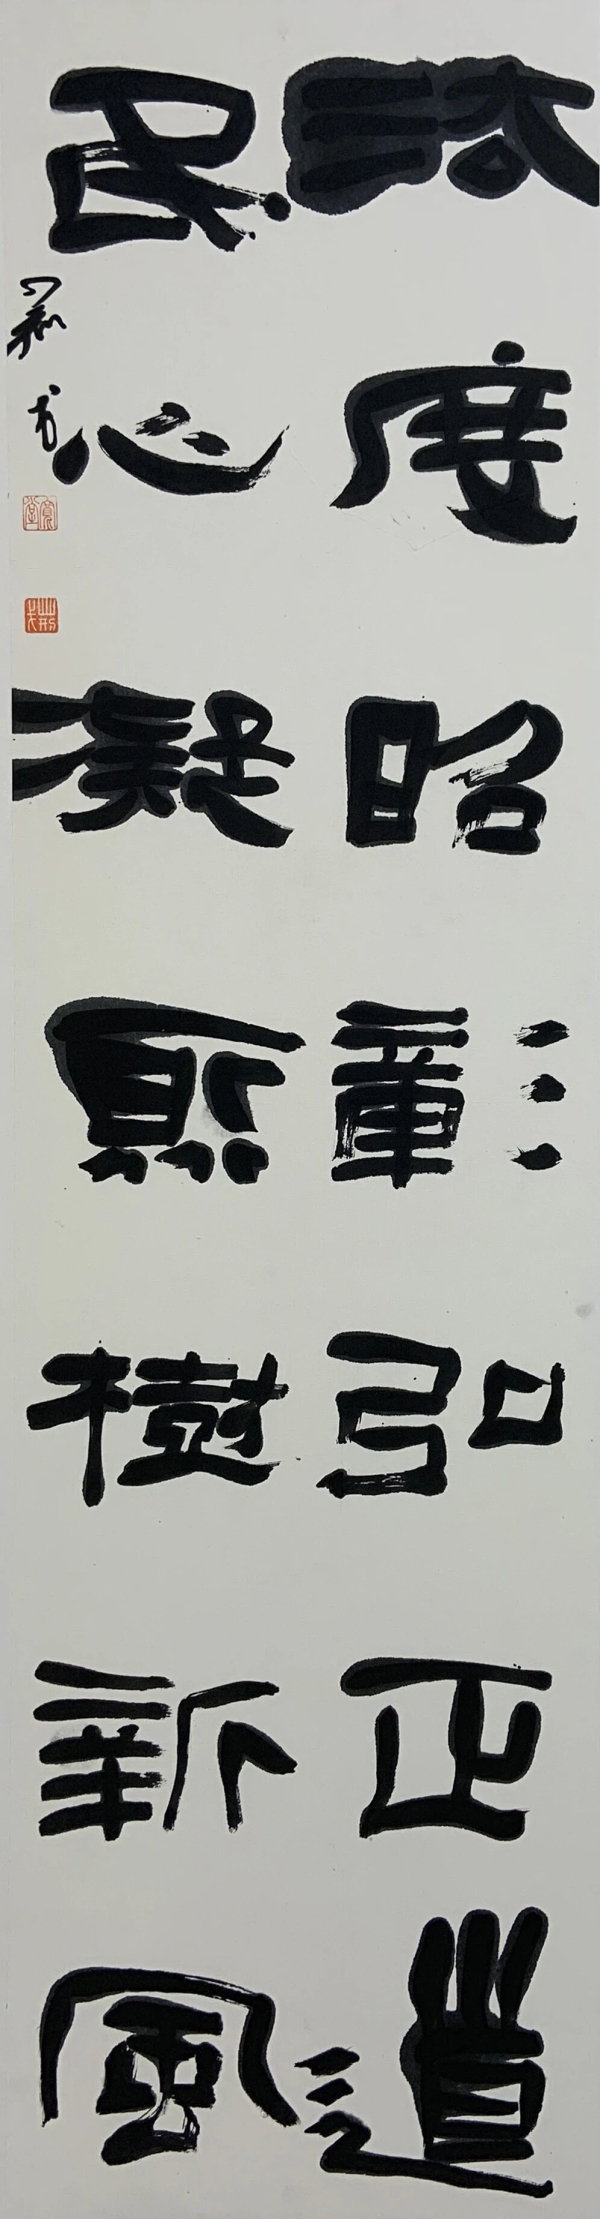 法度昭彰弘正道
民心凝聚樹新風